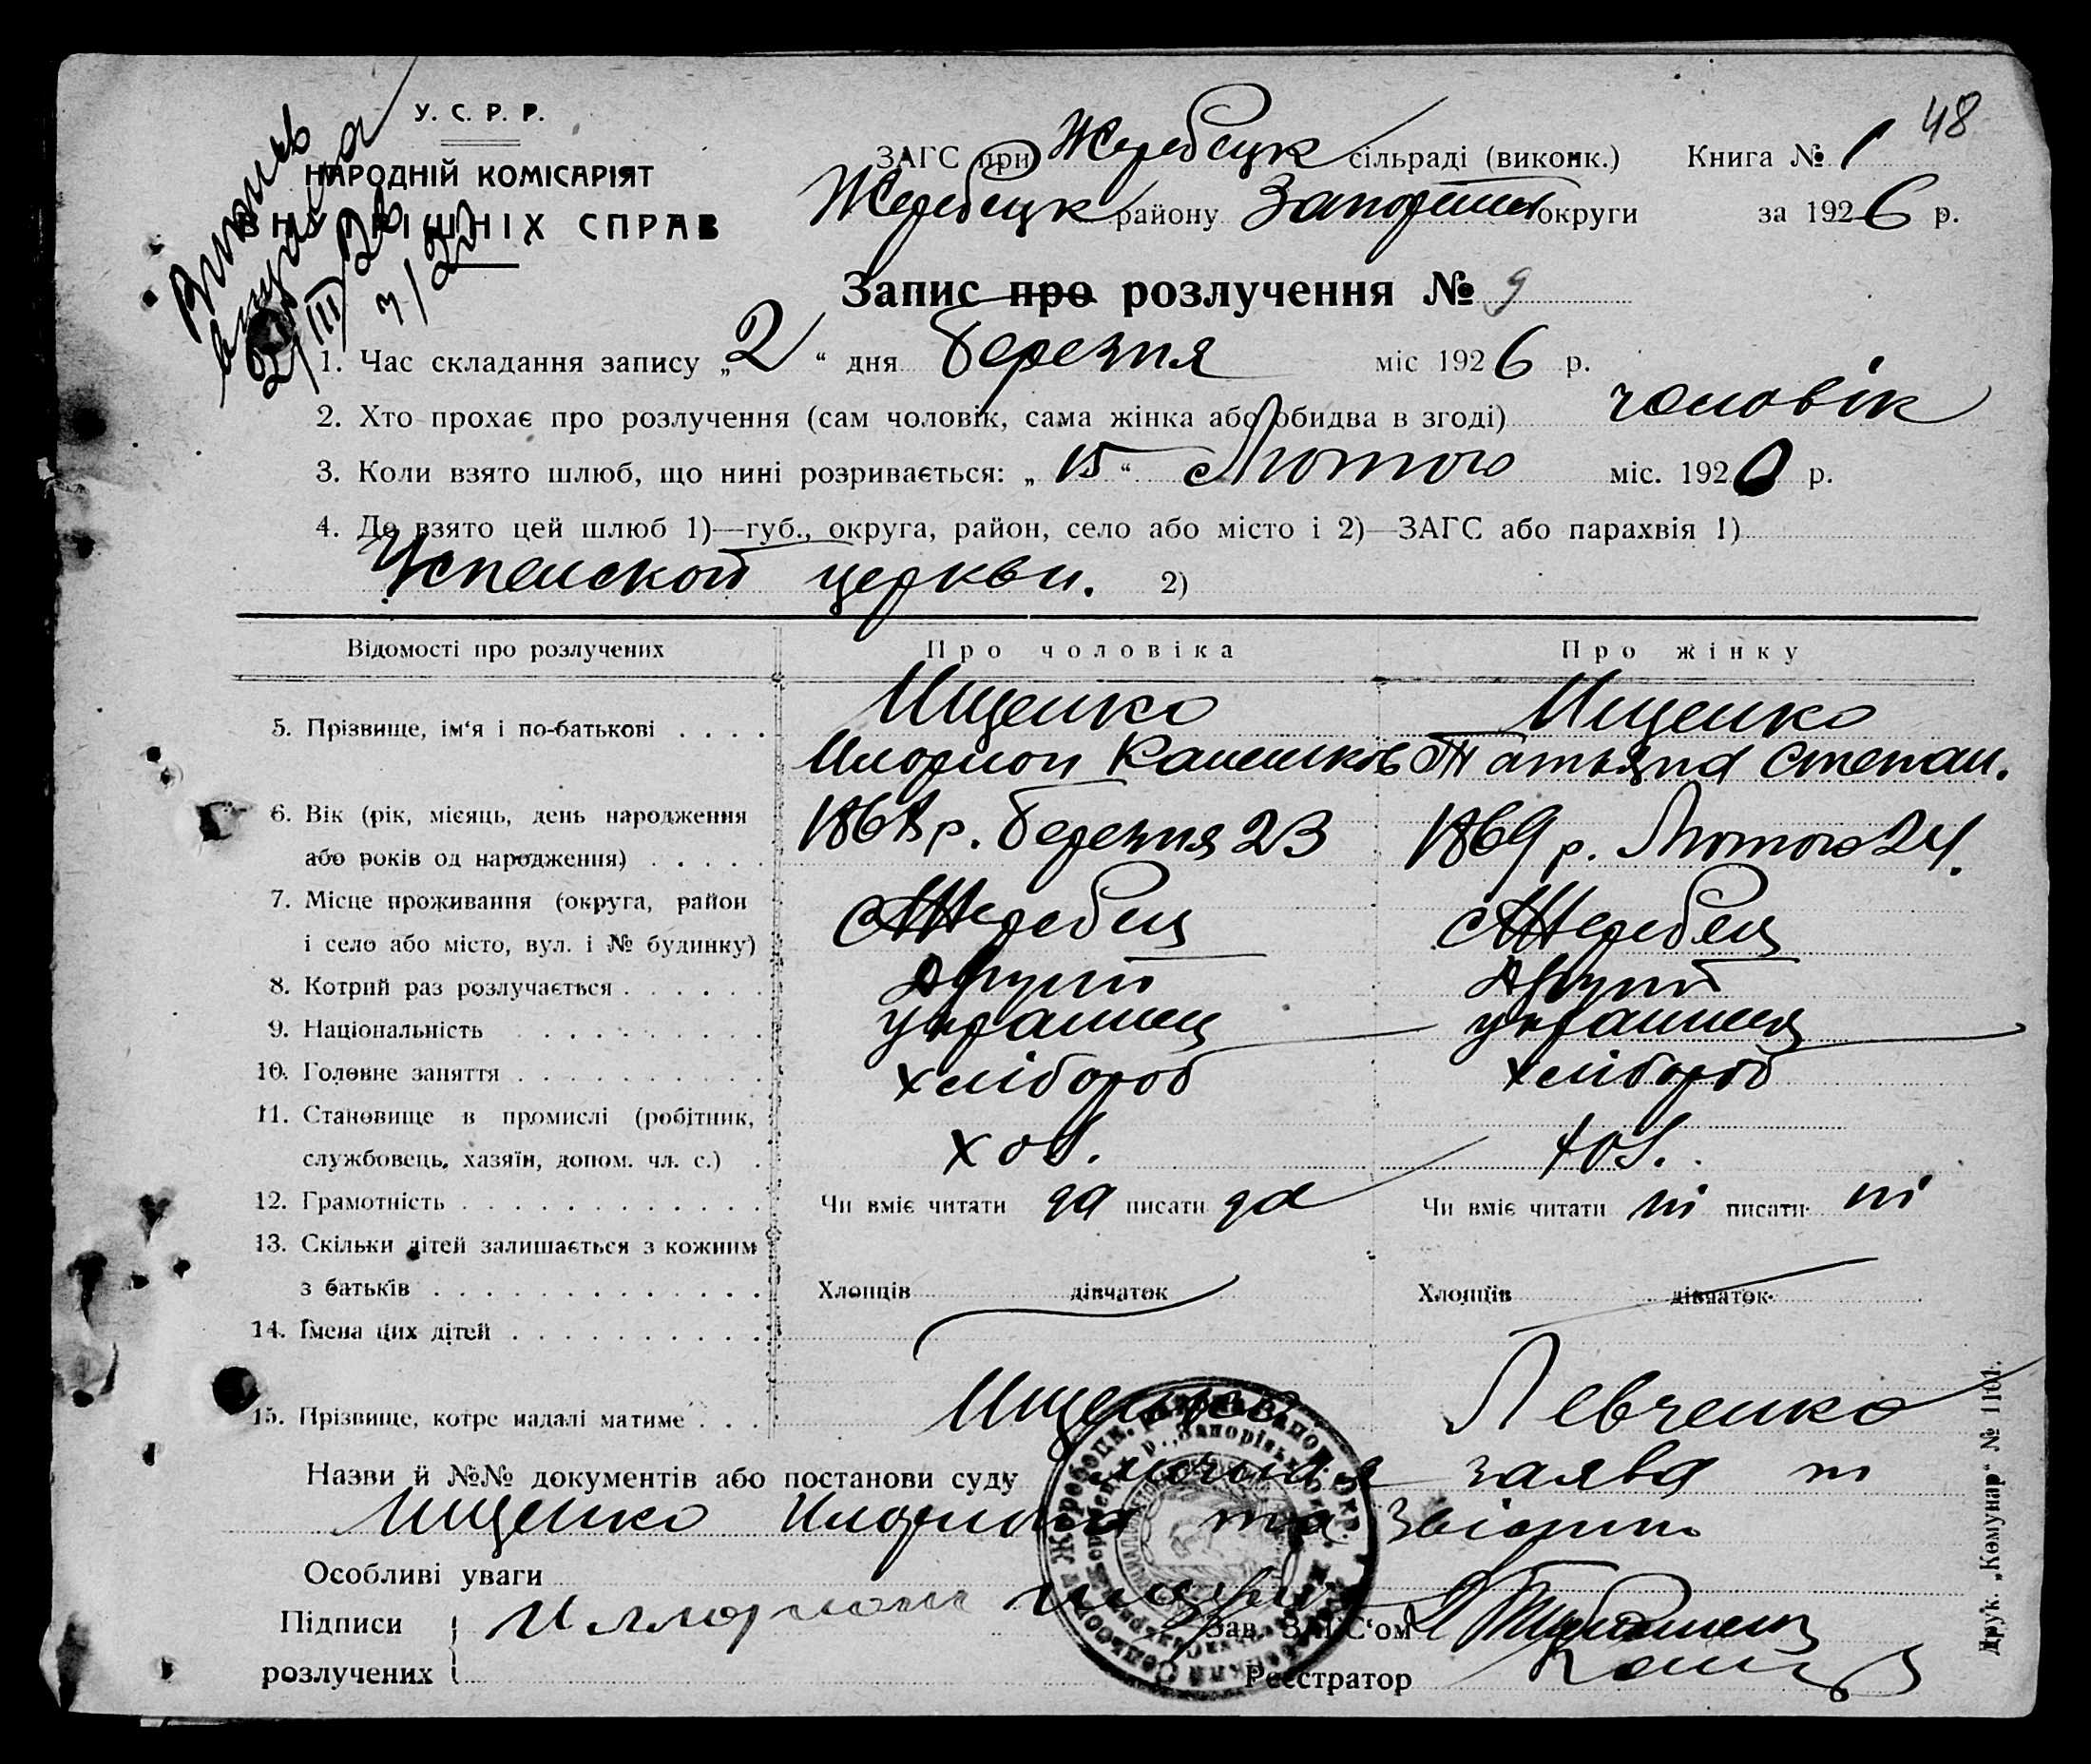 48
У. С. Р. Р.
НАРОДНІЙ КОМІСАРІЯТ
ВНУТРІШНІХ СПРАВ
ЗАГС при Жеребецк сільраді (виконк.) Книга № 1
Жеребецк району Запоріжськ округи за 1926 р.
Запис про розлучення № 9
1. Час складання запису „2“ дня березня міс 1926 р.
2. Хто прохає про розлучення (сам чоловік, сама жінка або обидва в згоді) чоловік
3. Коли взято шлюб, що нині розривається: „15“ Лютого міс. 1920 р.
4. Де взято цей шлюб 1)—губ., округа, район, село або місто і 2)—ЗАГС або парахвія 1)
Успенской церкви. 2)
Відомості про розлучених Про чоловіка Про жінку
5. Прізвище, ім‘я і по-батькові Ищенко Ищенко
Иларион Татьяна Степан.
6. Вік (рік, місяць, день народження
або років од народження) 1868 р. березня 23 1869 р. Лютого 24.
7. Місце проживання (округа, район
і село або місто, вул. і № будинку) Жеребец Жеребец
8. Котрий раз розлучається другий другий
9. Національність украинец украинця
10. Головне заняття хлібороб хлібороб
11. Становище в промислі (робітник,
службовець, хазяїн, допом. чл. с.) хоз. хоз.
12. Грамотність Чи вміє читати да писати да Чи вміє читати ні писати ні
13. Скільки дітей залишається з кожним
з батьків Хлопців дівчаток Хлопців дівчаток
14. Імена цих дітей
15. Прізвище, котре надалі матиме Ищенко Левченко
Назви й №№ документів або постанови суду заява
Ищенко Илариона та
Особливі уваги
Підписи Илларион Зав. ЗАГС‘ом
розлучених Реєстратор
Друк. „Комунар“ № 1101.